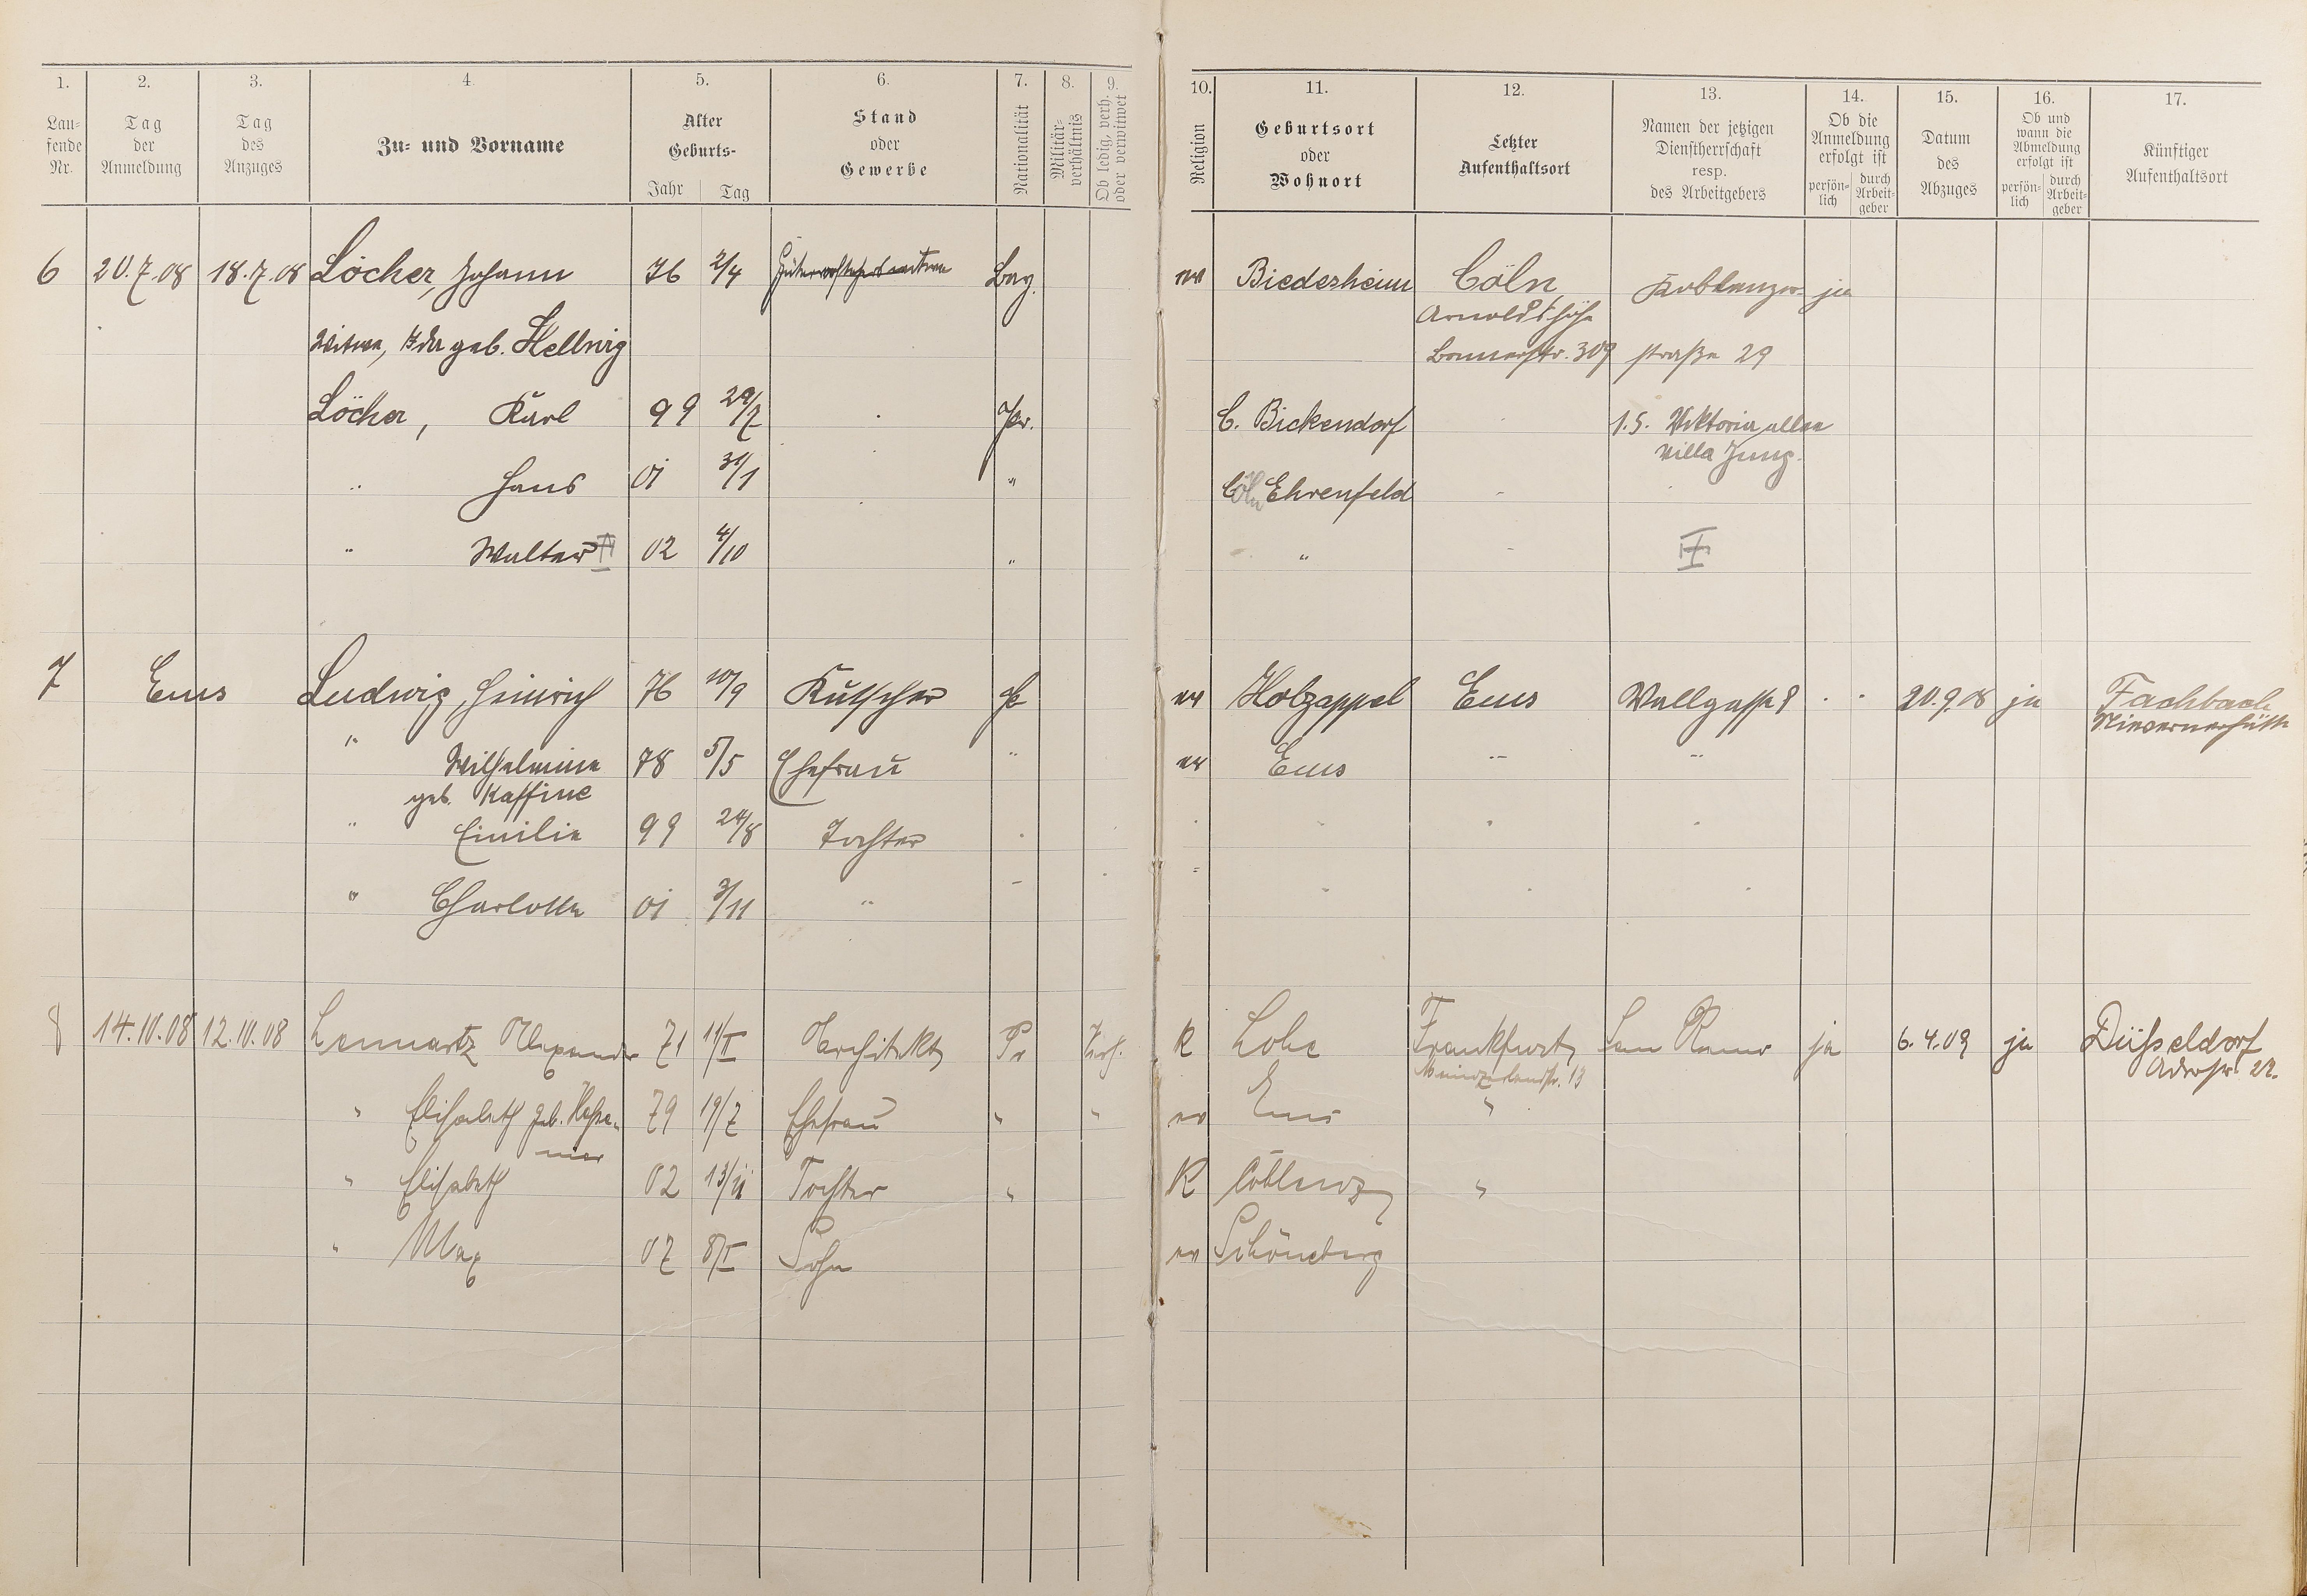 1. 2. 3. 4. 5. 6. 7. 8. 9. 10. 11. 12. 13. 14. 15. 16. 17.
Lau-fende Nr.
Tag der Anmeldung
Tag des Anzuges
Zu- und Vorname
Alter Geburts-
Jahr Tag
Stand oder Gewerbe
Nationalität
Militär-verhältnis
Ob ledig, verh. oder verwitwet
Religion
Geburtsort oder Wohnort
Letzter Aufenthaltsort
Namen der jetzigen Dienstherrschaft resp. des Arbeitgebers
Ob die Anmeldung erfolgt ist
persön-lich durch Arbeit-geber
Datum des Abzuges
Ob und wann die Abmeldung erfolgt ist
persön-lich durch Arbeit-geber
Künftiger Aufenthaltsort
6 20.7.08 18.7.08 Löcher, Johann 76 2/4 Bay. ev Biedesheim Cöln Koblenzer- ja
Arnoldshöhe
Witwe, Ida geb. Hellwig Bonnerstr. 309 straße 29
Löcher, Karl 99 29/7 Pr. C. Bickendorf 1.5. Viktoriaallee
Villa Jung.
" Hans 01 31/1 " Cöln Ehrenfeld
" Walter 02 4/10 " "
7 Ems Ludwig, Heinrich 76 10/9 Kutscher Pr ev Holzappel Ems Wallgasse 8 20.9.08 ja Fachbach
Nievernerhütte
" Wilhelmine 78 5/5 Ehefrau " ev Ems
geb. Kaffine
" Emilie 99 24/8 Tochter
" Charlotte 01 3/11 "
8 14.10.08 12.10.08 Lennartz Alexander 71 11/I Architekt Pr Verh. K Lohe Frankfurt San Remo ja 6.4.09 ja Düsseldorf
Mainzerlandstr. 13 Adersstr 22.
" Elisabeth geb. 79 19/7 Ehefrau " " ev Ems "
" Elisabeth 02 13/11 Tochter " K Coblenz "
" Max 07 8/I Sohn ev Schöneberg